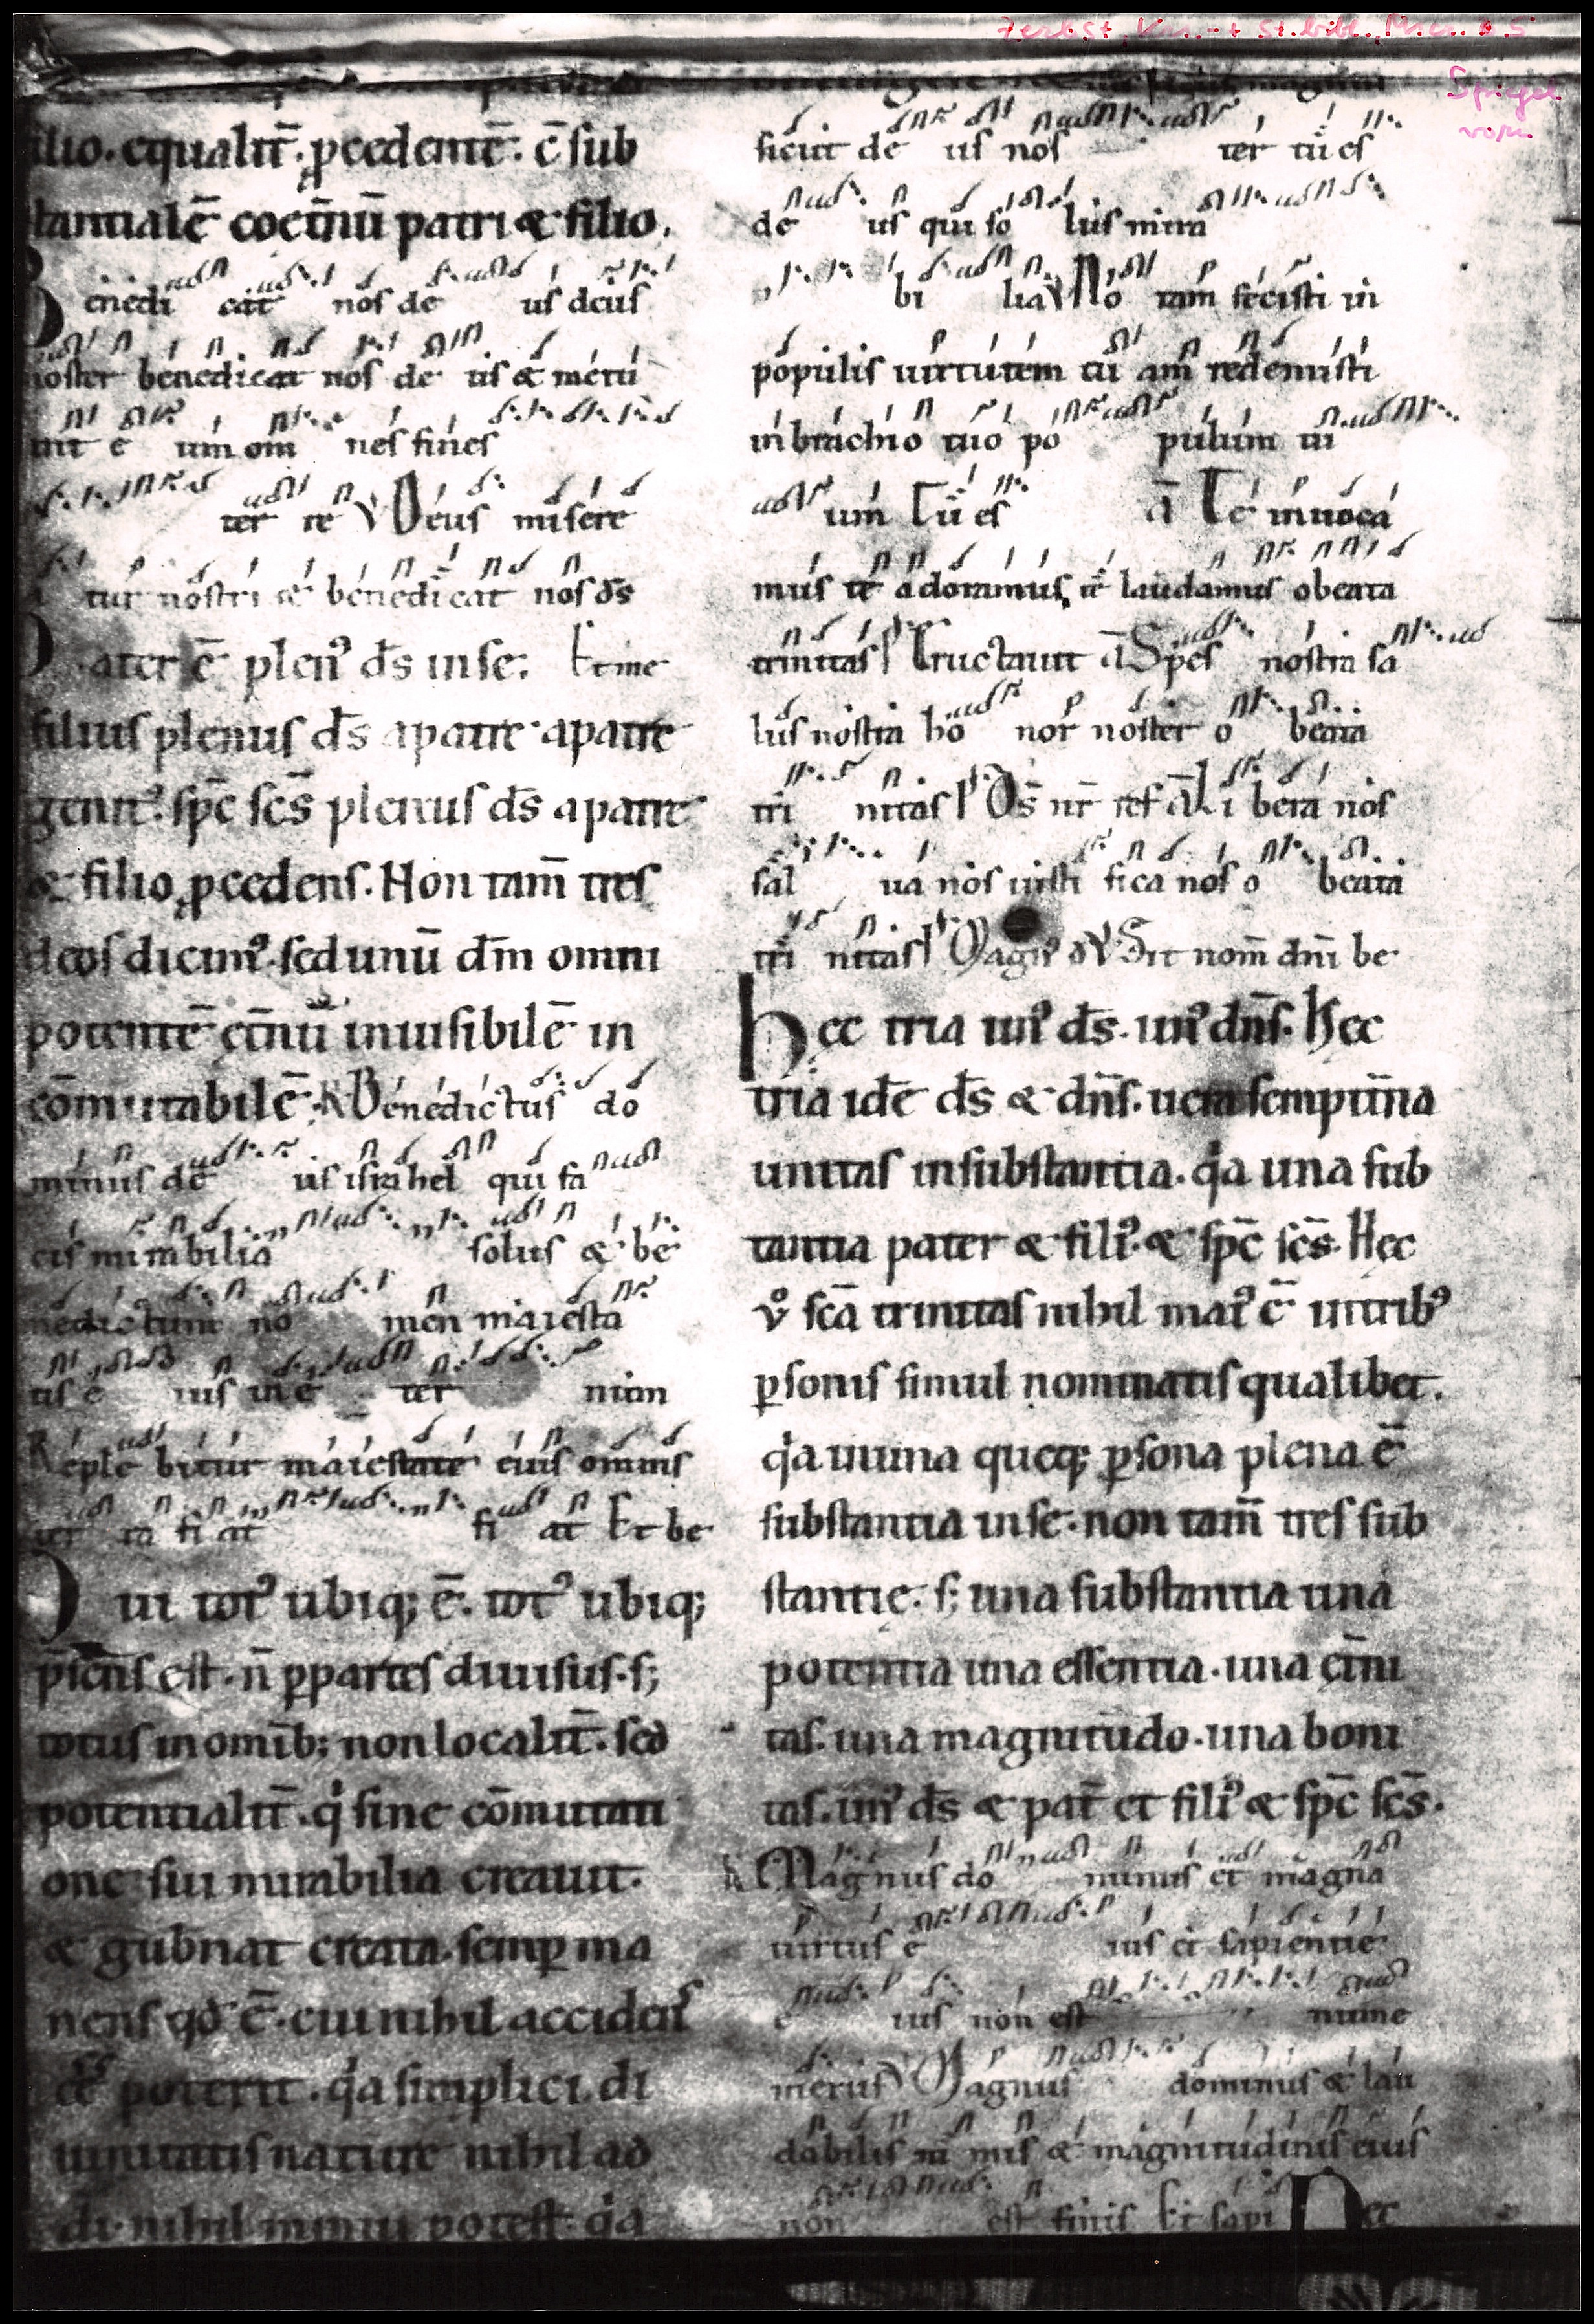 filio. equalit̄. ꝓcedentē. c̄sub
stantialē coet̄nū patri & filio.
Benedi cat nos de us deus
noster benedicat nos de us & metu
ant e um om nes fines
ter re V Deus misere
a tur nostri & benedicat nos ds̄
Pater ē plenꝰ ds̄ in se. Et me
filius plenus ds̄ a patre a patre
genitꝰ. sp̄c sc̄s plenus ds̄ a patre
& filio ꝓcedens. Non tam̄ tres
deos dicimꝰ. sed unū dm̄ omni
potentē et̄nū inuisibilē in
cōmutabilē. R Benedictus do
minus de us israhel qui fa
cis mirabilia solus & be
nedictum no men maiesta
tis e ius in e ter num
Reple bitur maiestate eius omnis
ter ra fi at fi at Et be
Qui totꝰ ubiq; ē. totꝰ ubiq;
p̄sens est. n̄ ꝑ partes diuisus. s;
totus in omīb; non localit̄. sed
potentialit̄. qͥ sine cōmutati
one sui mirabilia creauit.
& gub̄nat creata. semꝑ ma
nens qd̄ ē. cui nihil accidens
ēē poterit. qͣa simplici di
uinitatis nature nihil ad
di. nihil minui potest. qͣa
ficiat de us nos ter tu es
de us qui so lus mira
bi lia V No tam fecisti in
populis uirtutem tu am redemisti
in brachio tuo po pulum tu
um Tu es ā Te inuoca
mus te adoramus, te laudamus o beata
trinitas Eructauit ā Spes nostra sa
lus nostra ho nor noster o beata
tri nitas Ds̄ nr̄ ref ā Li bera nos
sal ua nos iusti fica nos o beata
tri nitas Magnꝰ d V Sit nom̄ dn̄i be
Hęc tria unꝰ ds̄. unꝰ dn̄s. Hęc
tria idē ds̄ & dn̄s. uera sempit̄na
unitas in substantia. qͣa una sub
tantia pater & filiꝰ. & sp̄c sc̄s. Hęc
v̊ sc̄a trinitas nihil maiꝰ ē in tribꝰ
ꝑsonis simul nominatis qualibet.
qͣa in una queq; ꝑsona plena ē
substantia in se. non tam̄ tres sub
stantię. s; una substantia una
potentia una essentia. una ęt̄ni
tas. una magnitudo. una boni
tas. unꝰ ds̄ & pat̄ et filiꝰ & sp̄c sc̄s.
R Magnus do minus et magna
uirtus e ius et sapientie
e ius non est nume
merus V Magnus dominus & lau
dabilis ni mis & magnitudinis eius
non est finis Et sapi Nec